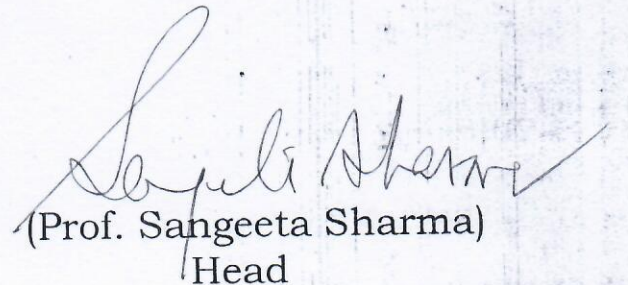 Sangeeta Sharma
(Prof. Sangeeta Sharma)
Head